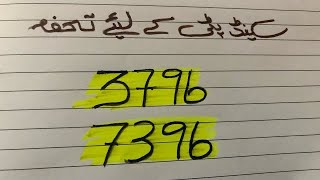 سیکنڈ پٹی کے لیئے تحفہ
3796
7396